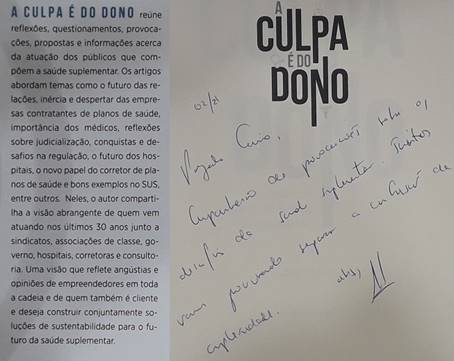 A CULPA É DO DONO reúne
reflexões, questionamentos, provoca-
ções, propostas e informações acerca
da atuação dos públicos que com-
põem a saúde suplementar. Os artigos
abordam temas como o futuro das re-
lações, inércia e despertar das empre-
sas contratantes de planos de saúde,
importância dos médicos, reflexões
sobre judicialização, conquistas e de-
safios na regulação, o futuro dos hos-
pitais, o novo papel do corretor de pla-
nos de saúde e bons exemplos no SUS,
entre outros. Neles, o autor comparti-
lha a visão abrangente de quem vem
atuando nos últimos 30 anos junto a
sindicatos, associações de classe, go-
verno, hospitais, corretoras e consulto-
ria. Uma visão que reflete angústias e
opiniões de empreendedores em toda
a cadeia e de quem também é cliente
e deseja construir conjuntamente so-
luções de sustentabilidade para o fu-
turo da saúde suplementar.
A
CULPA
É DO
DONO
02/21
de provocações sobre os
desafios da saúde suplementar.
vamos a
complexidade.
abs,